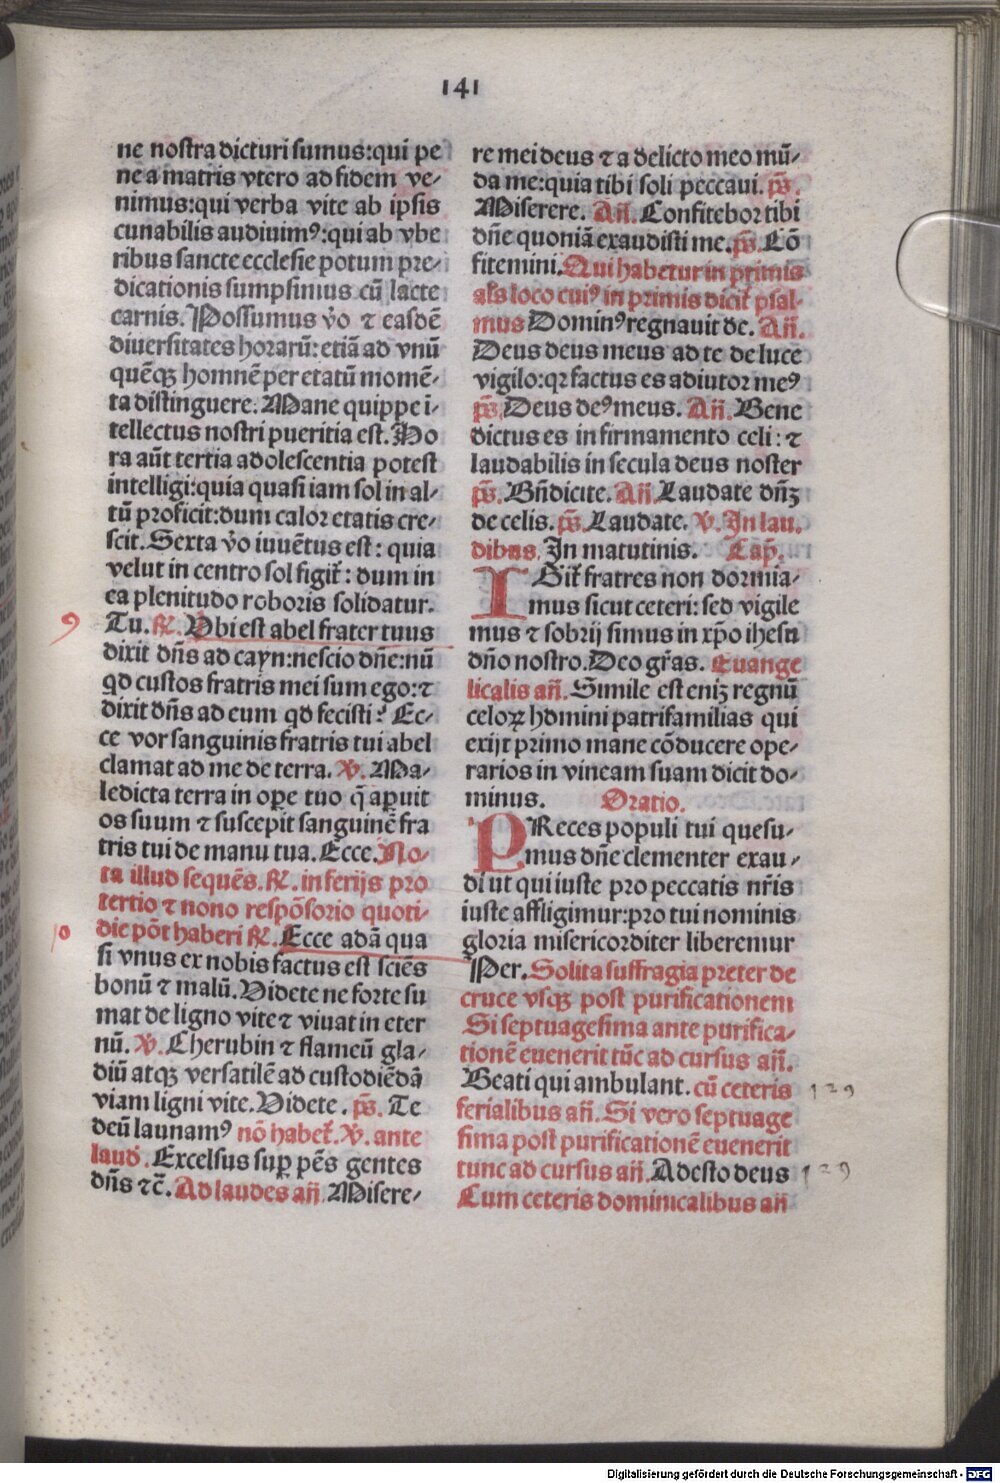 141
ne nostra dicturi sumus:qui pe
ne a matris vtero ad fidem ve-
nimus:qui verba vite ab ipsis
cunabilis audiuimꝰ:qui ab vbe
ribus sancte ecclesie potum pre-
dicationis sumpsimus cũ lacte
carnis. Possumus v̉o ⁊ easdẽ
diuersitates horarũ: etiã ad vnũ
quẽqꝫ homnẽ per etatũ momẽ-
ta distinguere. Mane quippe ĩ-
tellectus nostri pueritia est. Ho
ra aũt tertia adolescentia potest
intelligi:quia quasi iam sol in al-
tũ proficit:dum calor etatis cre-
scit. Sexta v̉o iuuẽtus est: quia
velut in centro sol figit᷑: dum in
ea plenitudo roboris solidatur.
9 Tu. ꝶ. Vbi est abel frater tuus
dixit dñs ad cayn:nescio dñe:nũ
qd custos fratris mei sum ego:⁊
dixit dñs ad eum qd fecisti? Ec-
ce vox sanguinis fratris tui abel
clamat ad me de terra. ℣. Ma-
ledicta terra in oꝑe tuo q̃ aꝑuit
os suum ⁊ suscepit sanguinẽ fra
tris tui de manu tua. Ecce. No-
ta illud sequẽs. ꝶ. in ferijs pro
tertio ⁊ nono respõsorio quoti-
10 die põt haberi ꝶ. Ecce adã qua
si vnus ex nobis factus est sciẽs
bonũ ⁊ malũ. Videte ne forte su
mat de ligno vite ⁊ viuat in eter
nũ. ℣. Cherubin ⁊ flameũ gla-
diũ atqꝫ versatilẽ ad custodiẽdã
viam ligni vite. Videte. p̃s. Te
deũ launamꝰ nõ habet᷑. ℣. ante
laud. Excelsus suꝑ oẽs gentes
dñs ⁊c̃. Ad laudes añ. Misere-
re mei deus ⁊ a delicto meo mũ-
da me:quia tibi soli peccaui. p̃s.
Miserere. Añ. Confitebor tibi
dñe quoniã exaudisti me. p̃s. Cõ
fitemini. Qui habetur in primis
als loco cuiꝰ in primis dicit᷑ psal-
mus Dominꝰ regnauit de. Añ.
Deus deus meus ad te de luce
vigilo:qꝛ factus es adiutor meꝰ
p̃s. Deus deꝰ meus. Añ. Bene
dictus es in firmamento celi: ⁊
laudabilis in secula deus noster
p̃s. Bñdicite. Añ. Laudate dñꝫ
de celis. p̃s. Laudate. ℣. In lau-
dibus. In matutinis. Cap̃.
IGit᷑ fratres non dormia-
mus sicut ceteri: sed vigile
mus ⁊ sobrij simus in xp̃o ihesu
dño nostro. Deo gr̃as. Euange
licalis añ. Simile est eniꝫ regnũ
celoꝝ homini patrifamilias qui
exijt primo mane cõducere ope-
rarios in vineam suam dicit do-
minus. Oratio.
PReces populi tui quesu-
mus dñe clementer exau-
di ut qui iuste pro peccatis nr̃is
iuste affligimur:pro tui nominis
gloria misericorditer liberemur
Per. Solita suffragia preter de
cruce vsqꝫ post purificationem
Si septuagesima ante purifica-
tionẽ euenerit tũc ad cursus añ.
Beati qui ambulant. cũ ceteris 129
ferialibus añ. Si vero septuage
sima post purificationẽ euenerit
tunc ad cursus añ. Adesto deus 129
Cum ceteris dominicalibus añ
Digitalisierung gefördert durch die Deutsche Forschungsgemeinschaft - DFG